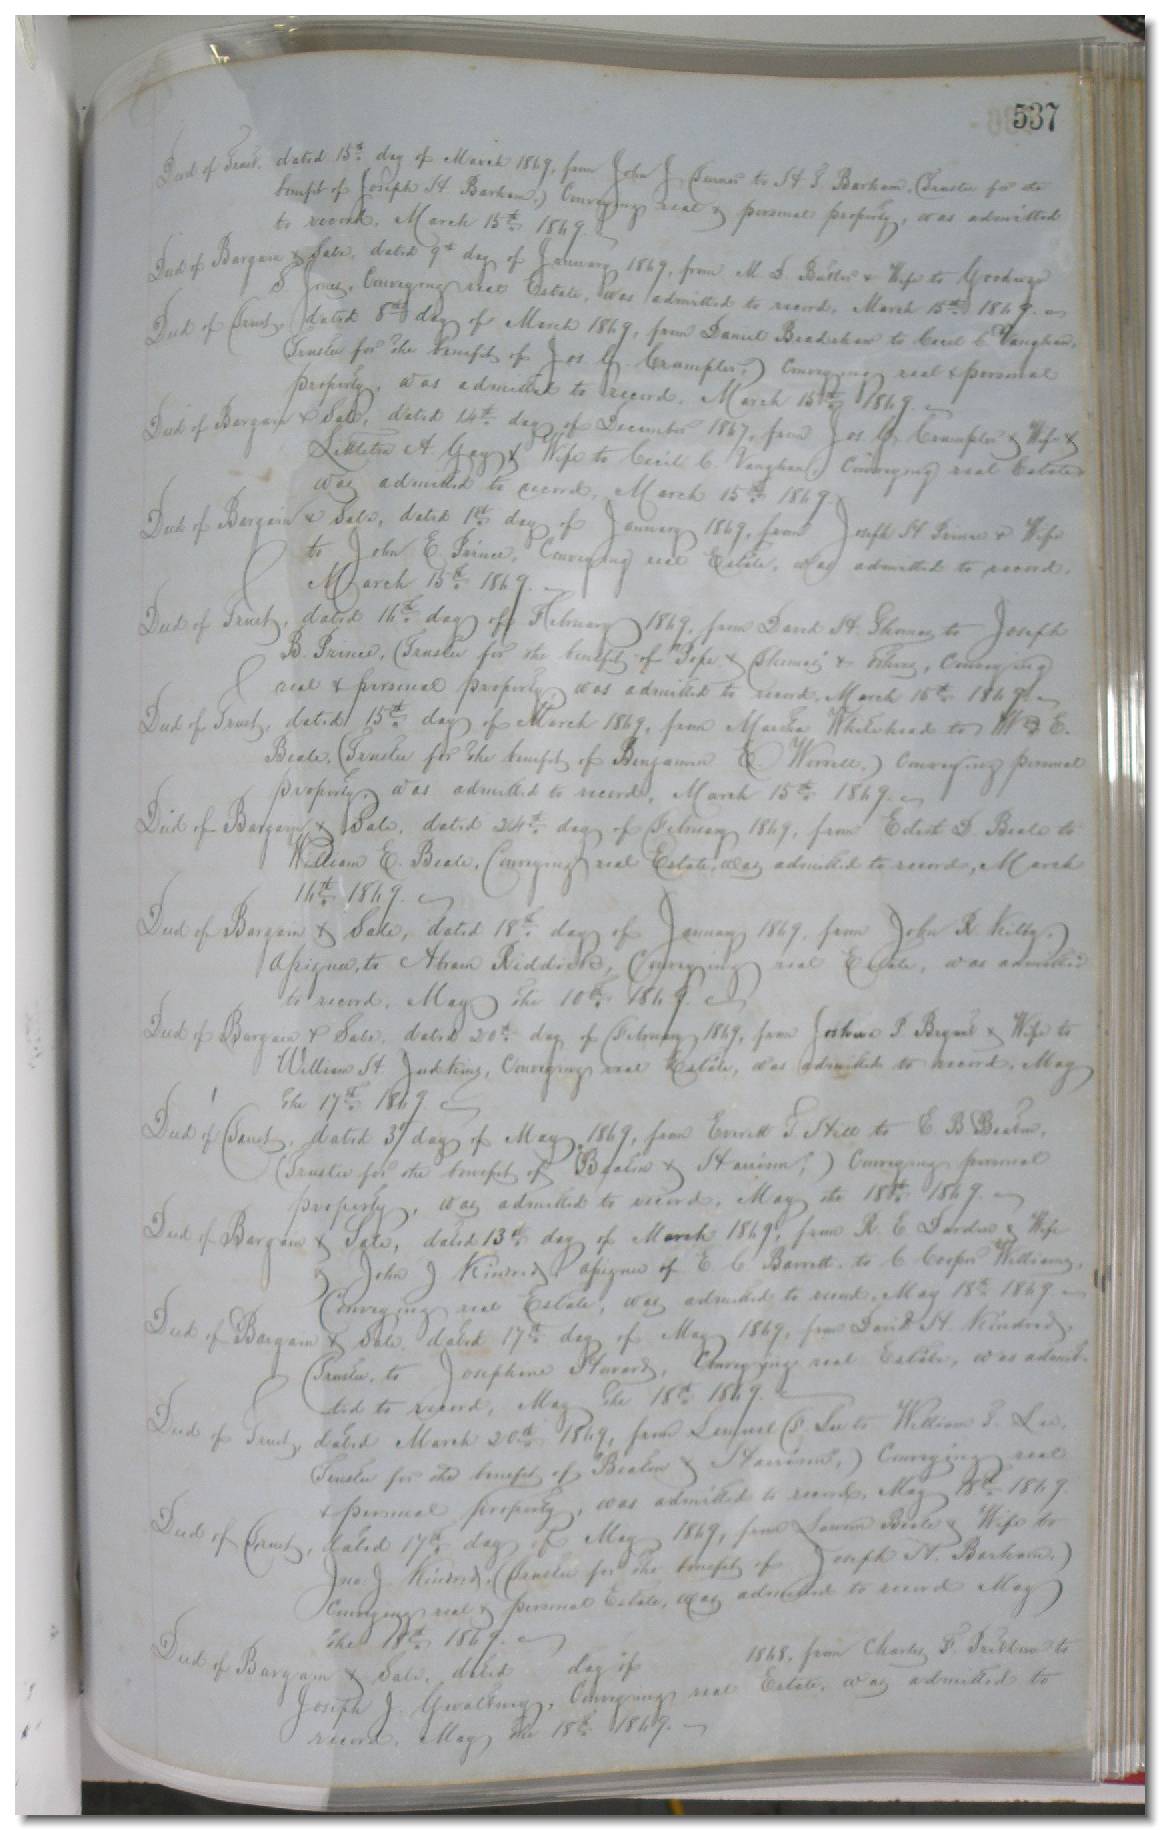 537
Deed of Trust, dated 15th day of March 1869, from John J. Turner to H. T. Barham, (Trustee for the
benefit of Joseph H. Barham,) Conveying real & personal property, was admitted
to record, March 15th 1869.
Deed of Bargain & Sale, dated 9th day of January 1869, from M. D. Butler & Wife to Goodwyn
S Jones, Conveying real Estate, was admitted to record, March 15th 1869.
Deed of Trust, dated 8th day of March 1869, from Daniel Bradshaw to Cecil C. Vaughan,
(Trustee for the benefit of Jos. G. Crumpler,) Conveying real & personal
property, was admitted to record, March 15th 1869.
Deed of Bargain & Sale, dated 14th day of December 1867, from Jos. G. Crumpler & Wife &
Littleton A. Gay & Wife to Cecil C. Vaughan, Conveying real Estate
was admitted to record, March 15th 1869.
Deed of Bargain & Sale, dated 1st day of January 1869, from Joseph H. Prince & Wife
to John E. Prince, Conveying real Estate, was admitted to record,
March 15th 1869.
Deed of Trust, dated 16th day of February 1869, from David H. Thomas to Joseph
B. Prince, (Trustee for the benefit of Pope & Thomas & others, Conveying
real & personal property, was admitted to record, March 15th 1869.
Deed of Trust, dated 15th day of March 1869, from Whitehead to Wm E.
Beale, (Trustee for the benefit of Benjamin E. Worrell,) Conveying personal
property, was admitted to record, March 15th 1869.
Deed of Bargain & Sale, dated 24th day of February 1869, from D. Beale to
William E. Beale, Conveying real Estate, was admitted to record, March
16th 1869.
Deed of Bargain & Sale, dated 18th day of January 1869, from John R. Kilby,
Assignee, to Abram Riddick, Conveying real Estate, was admitted
to record, May the 10th 1869.
Deed of Bargain & Sale, dated 20th day of February 1869, from Joshua P. Bryant & Wife to
William H. Judkins, Conveying real Estate, was admitted to record, May
the 17th 1869.
Deed of Trust, dated 3d day of May 1869, from Everett T. Hill to E. B. Beaton,
(Trustee for the benefit of Beaton & Harrison,) Conveying personal
property, was admitted to record, May the 18th 1869.
Deed of Bargain & Sale, dated 13th day of March 1869, from R. E. Darden & Wife
& John J Kindred, assignee of E. C. Barrett, to C Cooper Williams,
Conveying real Estate, was admitted to record, May 18th 1869.
Deed of Bargain & Sale dated 17th day of May 1869, from David H. Kindred,
Trustee, to Josephine Howard, Conveying real Estate, was admit-
ted to record, May the 18th 1869.
Deed of Trust, dated March 20th 1869, from Lemuel F. Lee to William T. Lee,
(Trustee for the benefit of Beaton & Harrison,) Conveying real
& personal property, was admitted to record, May 18th 1869.
Deed of Trust, dated 17th day of May 1869, from Beale & Wife to
Jno. J. Kindred, (Trustee for the benefit of Joseph H. Barham,)
Conveying real & personal Estate, was admitted to record May
the 18th 1869.
Deed of Bargain & Sale, dated day of 1868, from Charles F. to
Joseph J. Gwaltney, Conveying real Estate, was admitted to
record, May the 18th 1869.